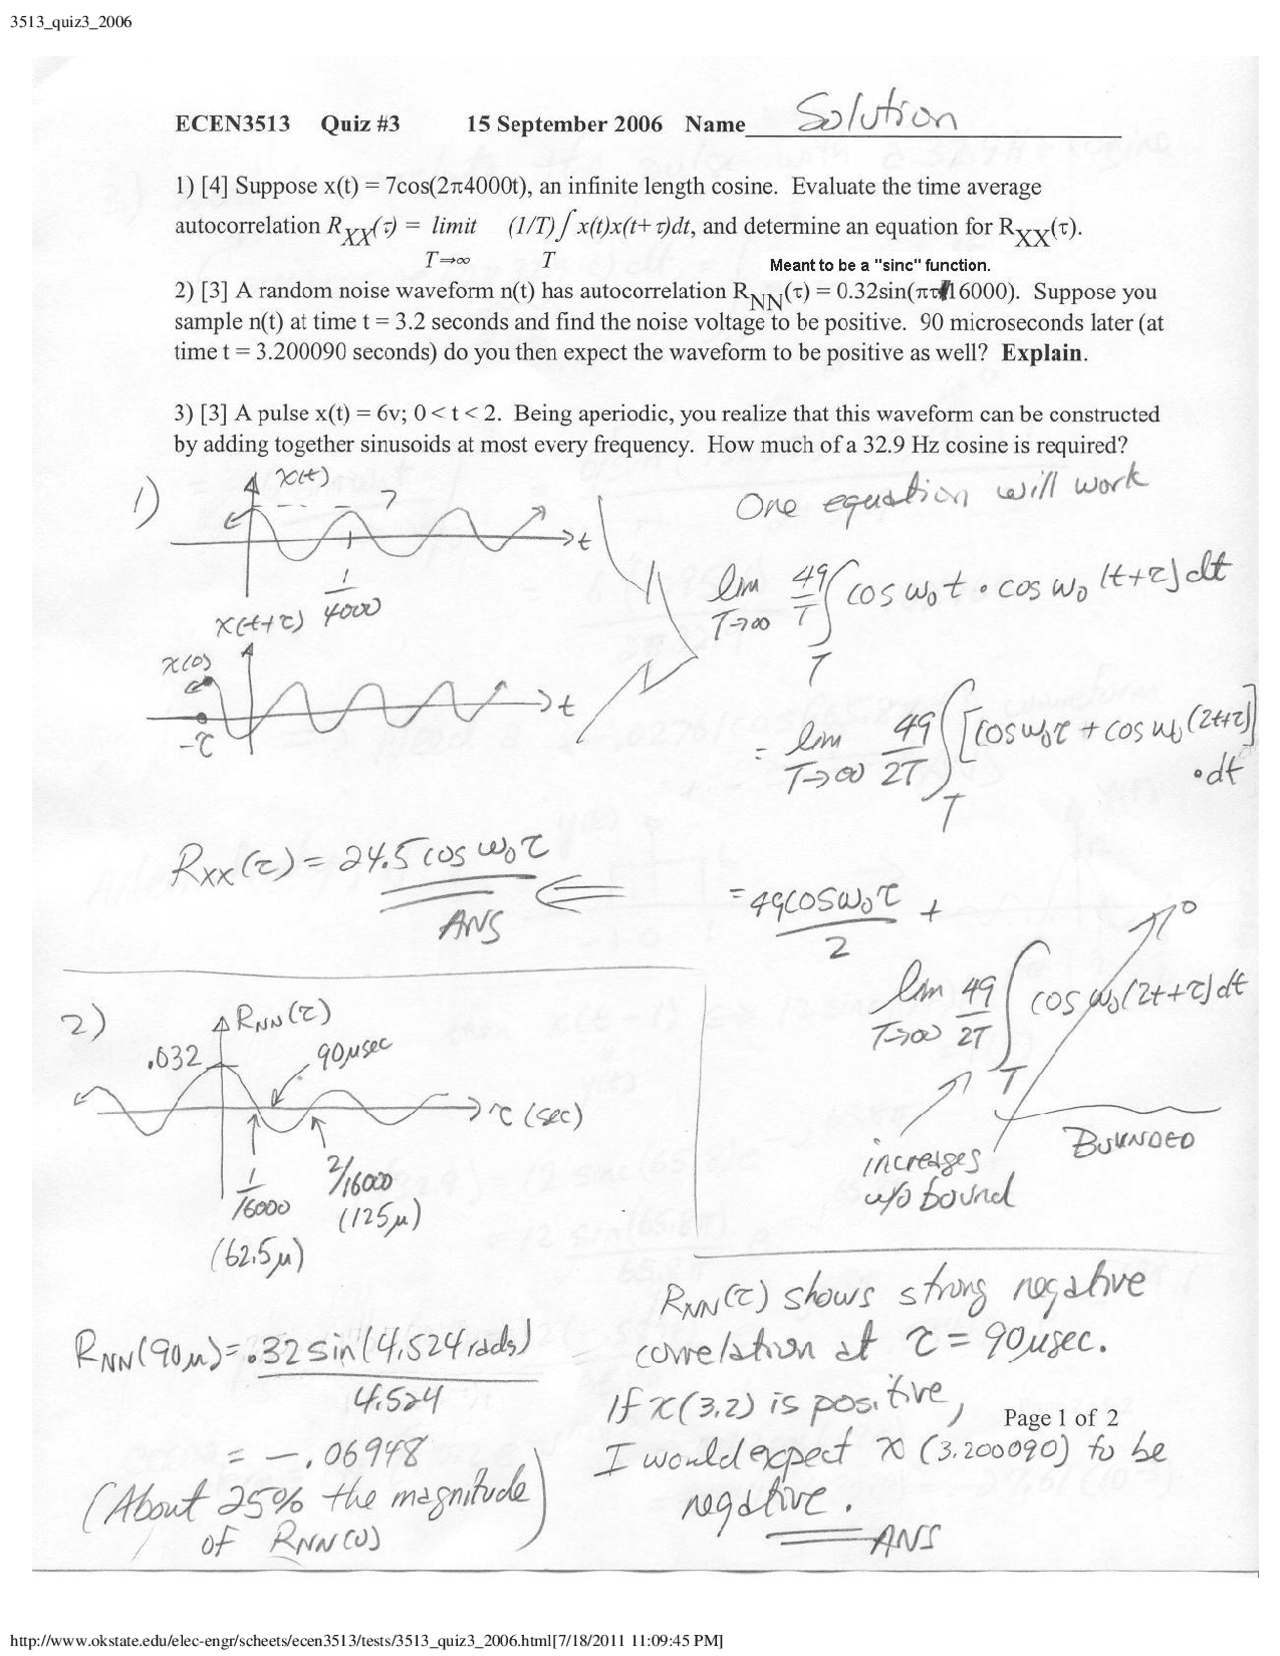 3513_quiz3_2006
ECEN3513 Quiz #3 15 September 2006 Name Solution
1) [4] Suppose x(t) = 7cos(2π4000t), an infinite length cosine. Evaluate the time average
autocorrelation R_XX(τ) = limit (1/T) ∫ x(t)x(t+ τ)dt, and determine an equation for R_XX(τ).
T⇒∞ T
Meant to be a "sinc" function.
2) [3] A random noise waveform n(t) has autocorrelation R_NN(τ) = 0.32sin(πτ16000). Suppose you
sample n(t) at time t = 3.2 seconds and find the noise voltage to be positive. 90 microseconds later (at
time t = 3.200090 seconds) do you then expect the waveform to be positive as well? Explain.
3) [3] A pulse x(t) = 6v; 0 < t < 2. Being aperiodic, you realize that this waveform can be constructed
by adding together sinusoids at most every frequency. How much of a 32.9 Hz cosine is required?
1)
x(t)
7
t
1/4000
x(t+τ)
x(0)
t
-τ
One equation will work
lim T→∞ 49/T ∫_T cos ω₀t • cos ω₀(t+τ)dt
= lim T→∞ 49/2T ∫_T [cos ω₀τ + cos ω₀(2t+τ)]
•dt
= 49cosω₀τ/2 +
0
lim T→∞ 49/2T ∫_T cos ω₀(2t+τ)dt
increases
w/o bound
BOUNDED
R_XX(τ) = 24.5 cos ω₀τ
ANS
2)
R_NN(τ)
.032
90μsec
τ (sec)
1/16000
(62.5μ)
2/16000
(125μ)
R_NN(90μ) = .32 sin(4.524 rads)/4.524
= -.06948
(About 25% the magnitude
of R_NN(0))
R_NN(τ) shows strong negative
correlation at τ = 90μsec.
If x(3.2) is positive,
Page 1 of 2
I would expect x(3.200090) to be
negative.
ANS
http://www.okstate.edu/elec-engr/scheets/ecen3513/tests/3513_quiz3_2006.html[7/18/2011 11:09:45 PM]